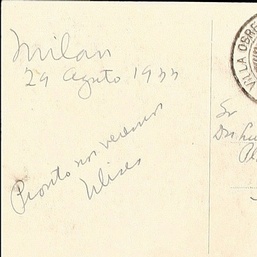 Milan
29 Agosto 1933
Pronto nos veremos
Ulises
VILLA OBRE
Sr